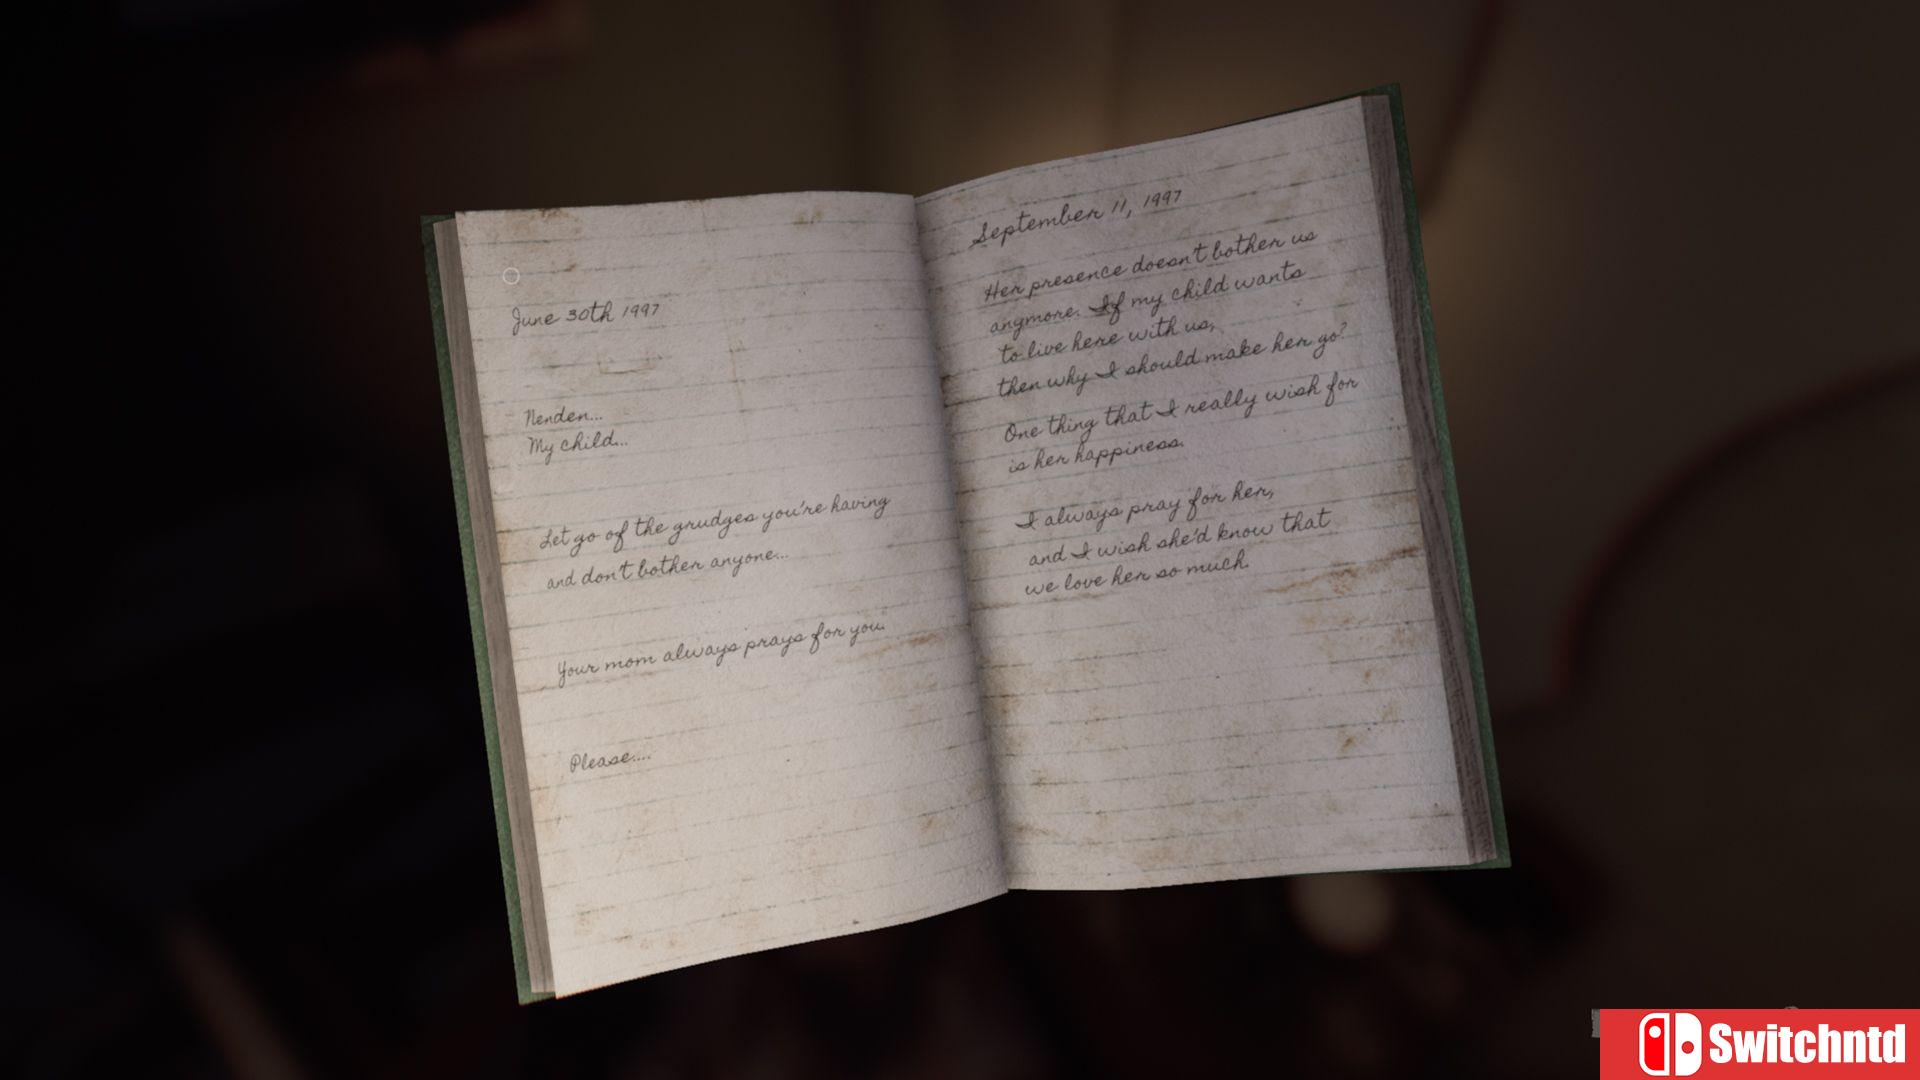 June 30th 1997
Nenden...
My child...
Let go of the grudges you're having
and don't bother anyone...
Your mom always prays for you.
Please....
September 11, 1997
Her presence doesn't bother us
angmore. If my child wants
to live here with us,
then why I should make her go?
One thing that I really wish for
is her happiness.
I always pray for her,
and I wish she'd know that
we love her so much.
Switchntd